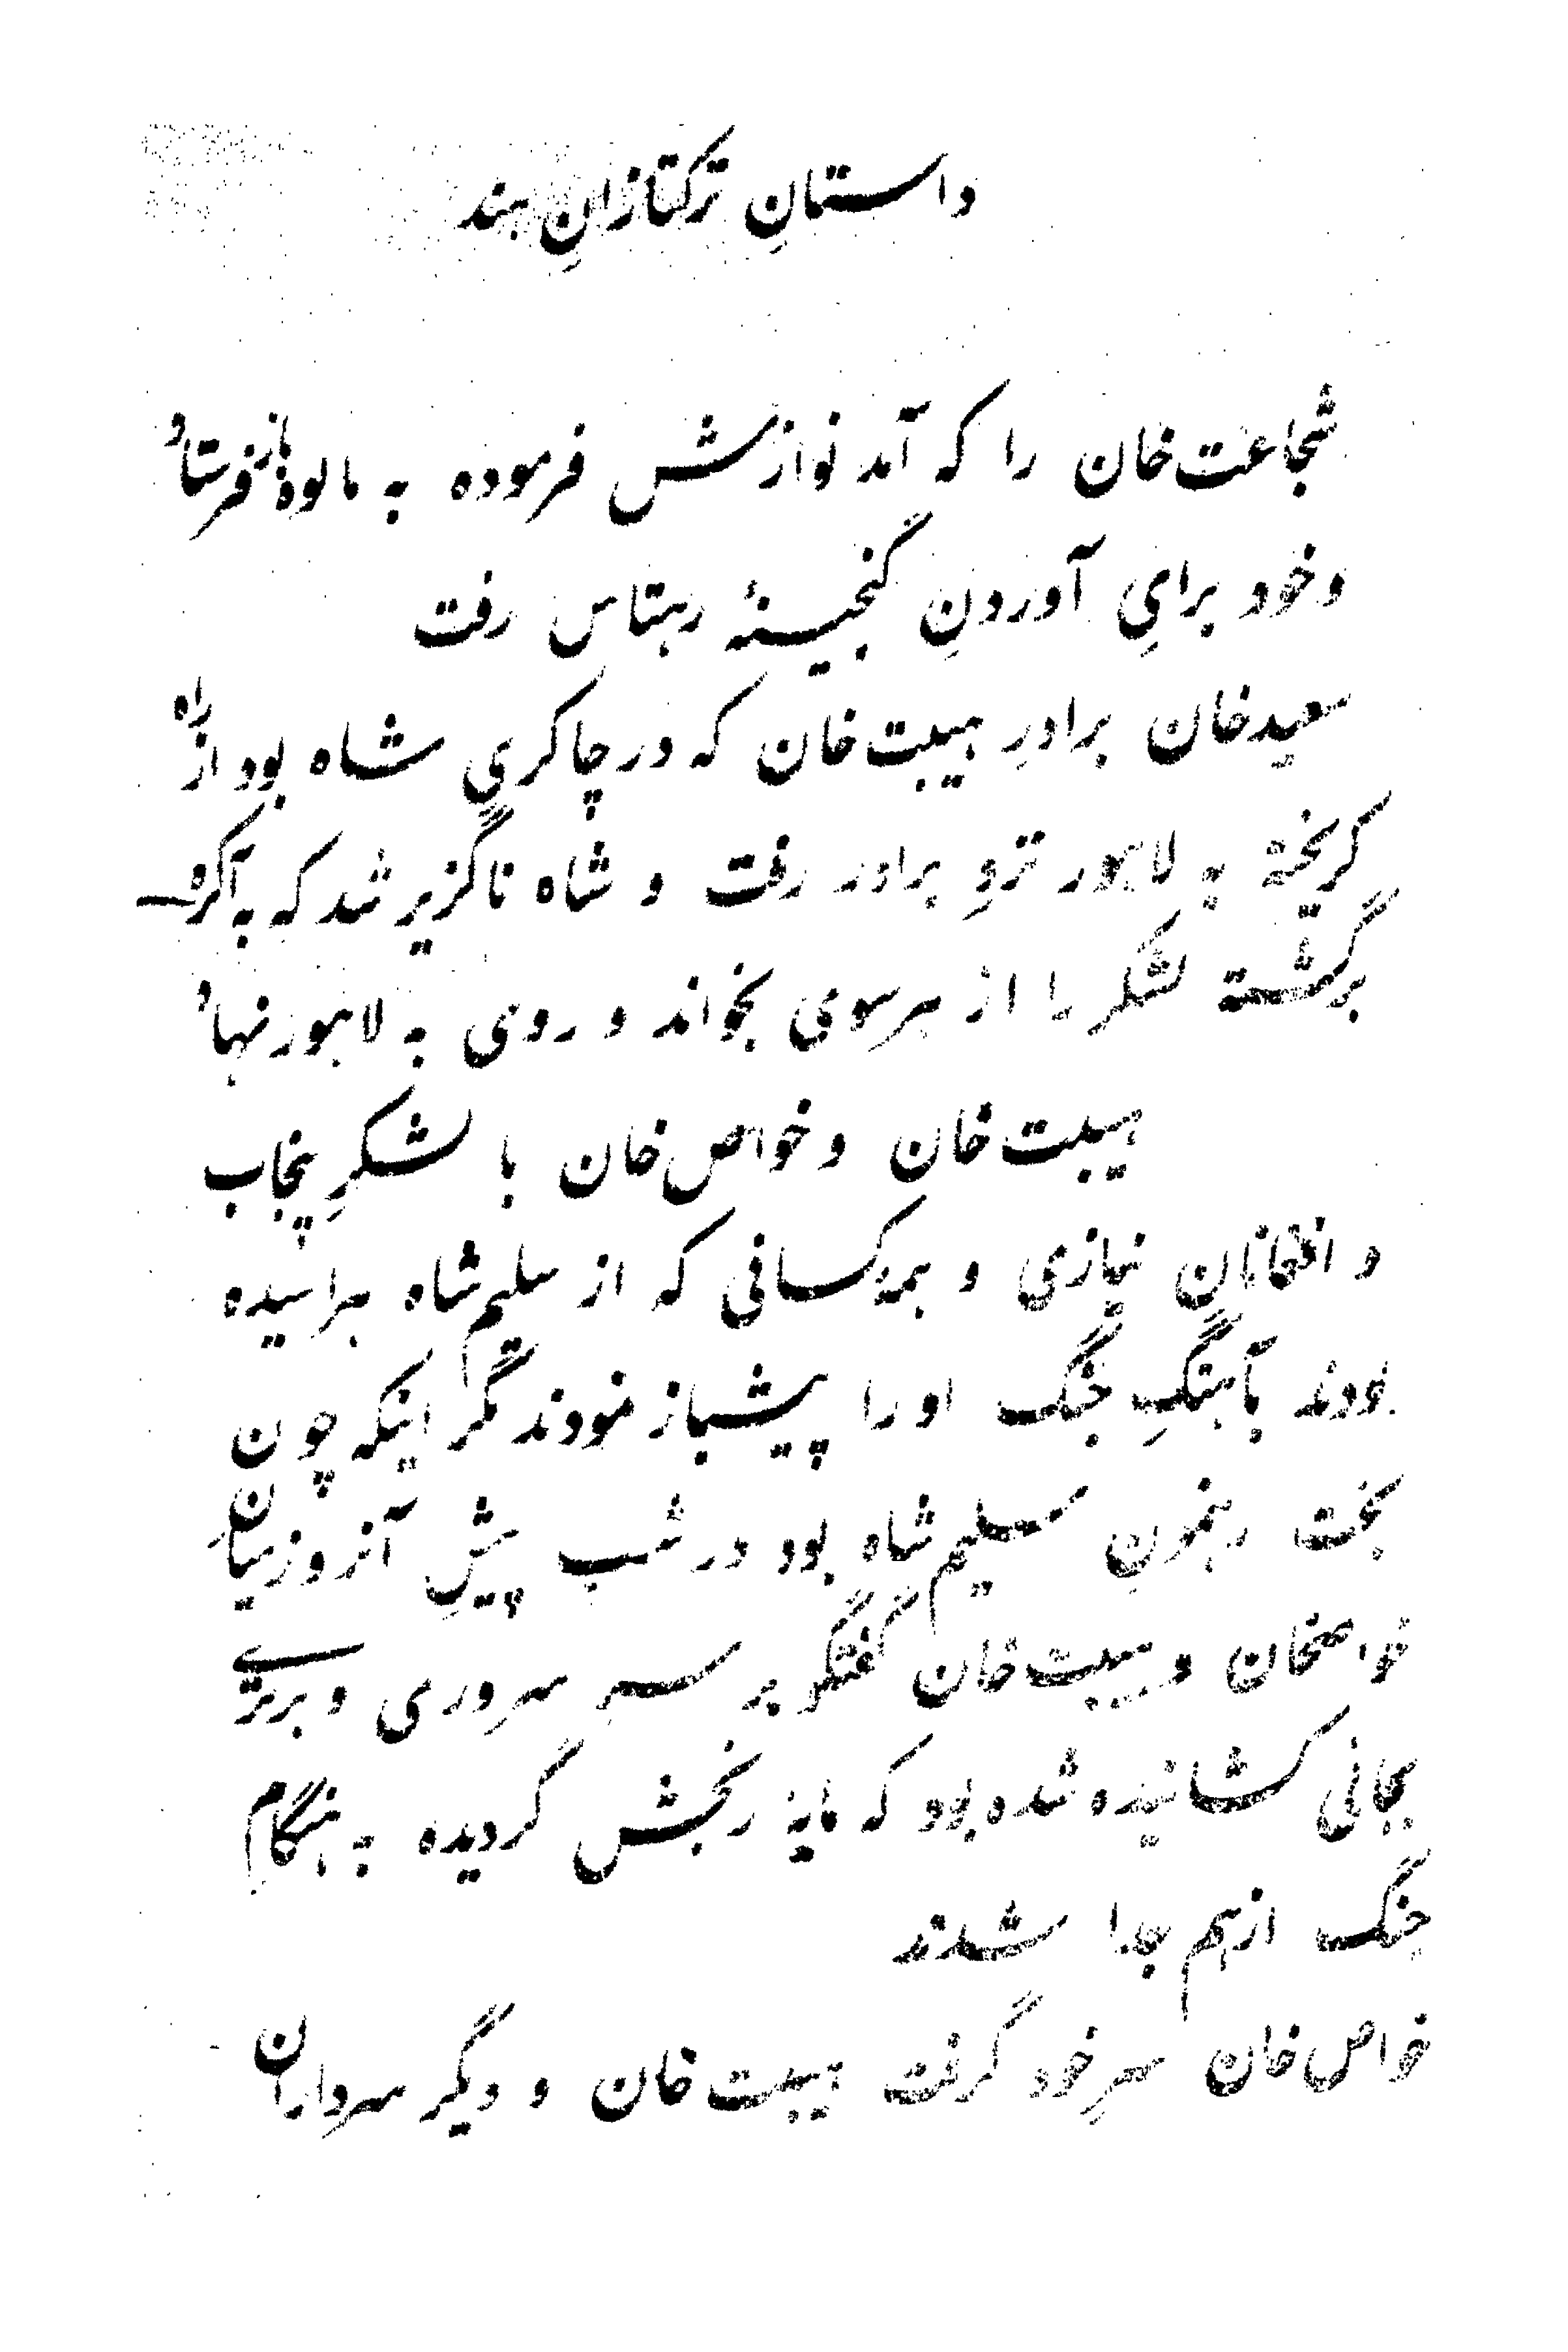 داستانِ ترکتازانِ هند
شجاعت خان را که آمد نوازش فرموده به مالوه باز فرستاد
و خود برایِ آوردنِ گنجینهٔ رهتاس رفت
سعید خان برادرِ هیبت خان که در چاکریِ شاه بود از راه
گریخته به لاهور نزدِ برادر رفت و شاه ناگزیر شد که به آگره
برگشته لشکر را از هر سوی بخواند و روی به لاهور نهاد
هیبت خان و خواص خان با لشکرِ پنجاب
و افغانانِ نیازی و همهٔ کسانی که از سلیم شاه هراسیده
بودند بآهنگِ جنگ او را پیشباز نمودند مگر اینکه چون
بخت رهنمونِ سلیم شاه بود در شب پیشِ آنروز میانِ
خواصخان و هیبت خان گفتگو بر سر سروری و برتری
بجائی کشانیده شده بود که مایهٔ رنجش گردیده به هنگام
جنگ از هم جدا شدند
خواص خان سرِ خود گرفت هیبت خان و دیگر سرداران